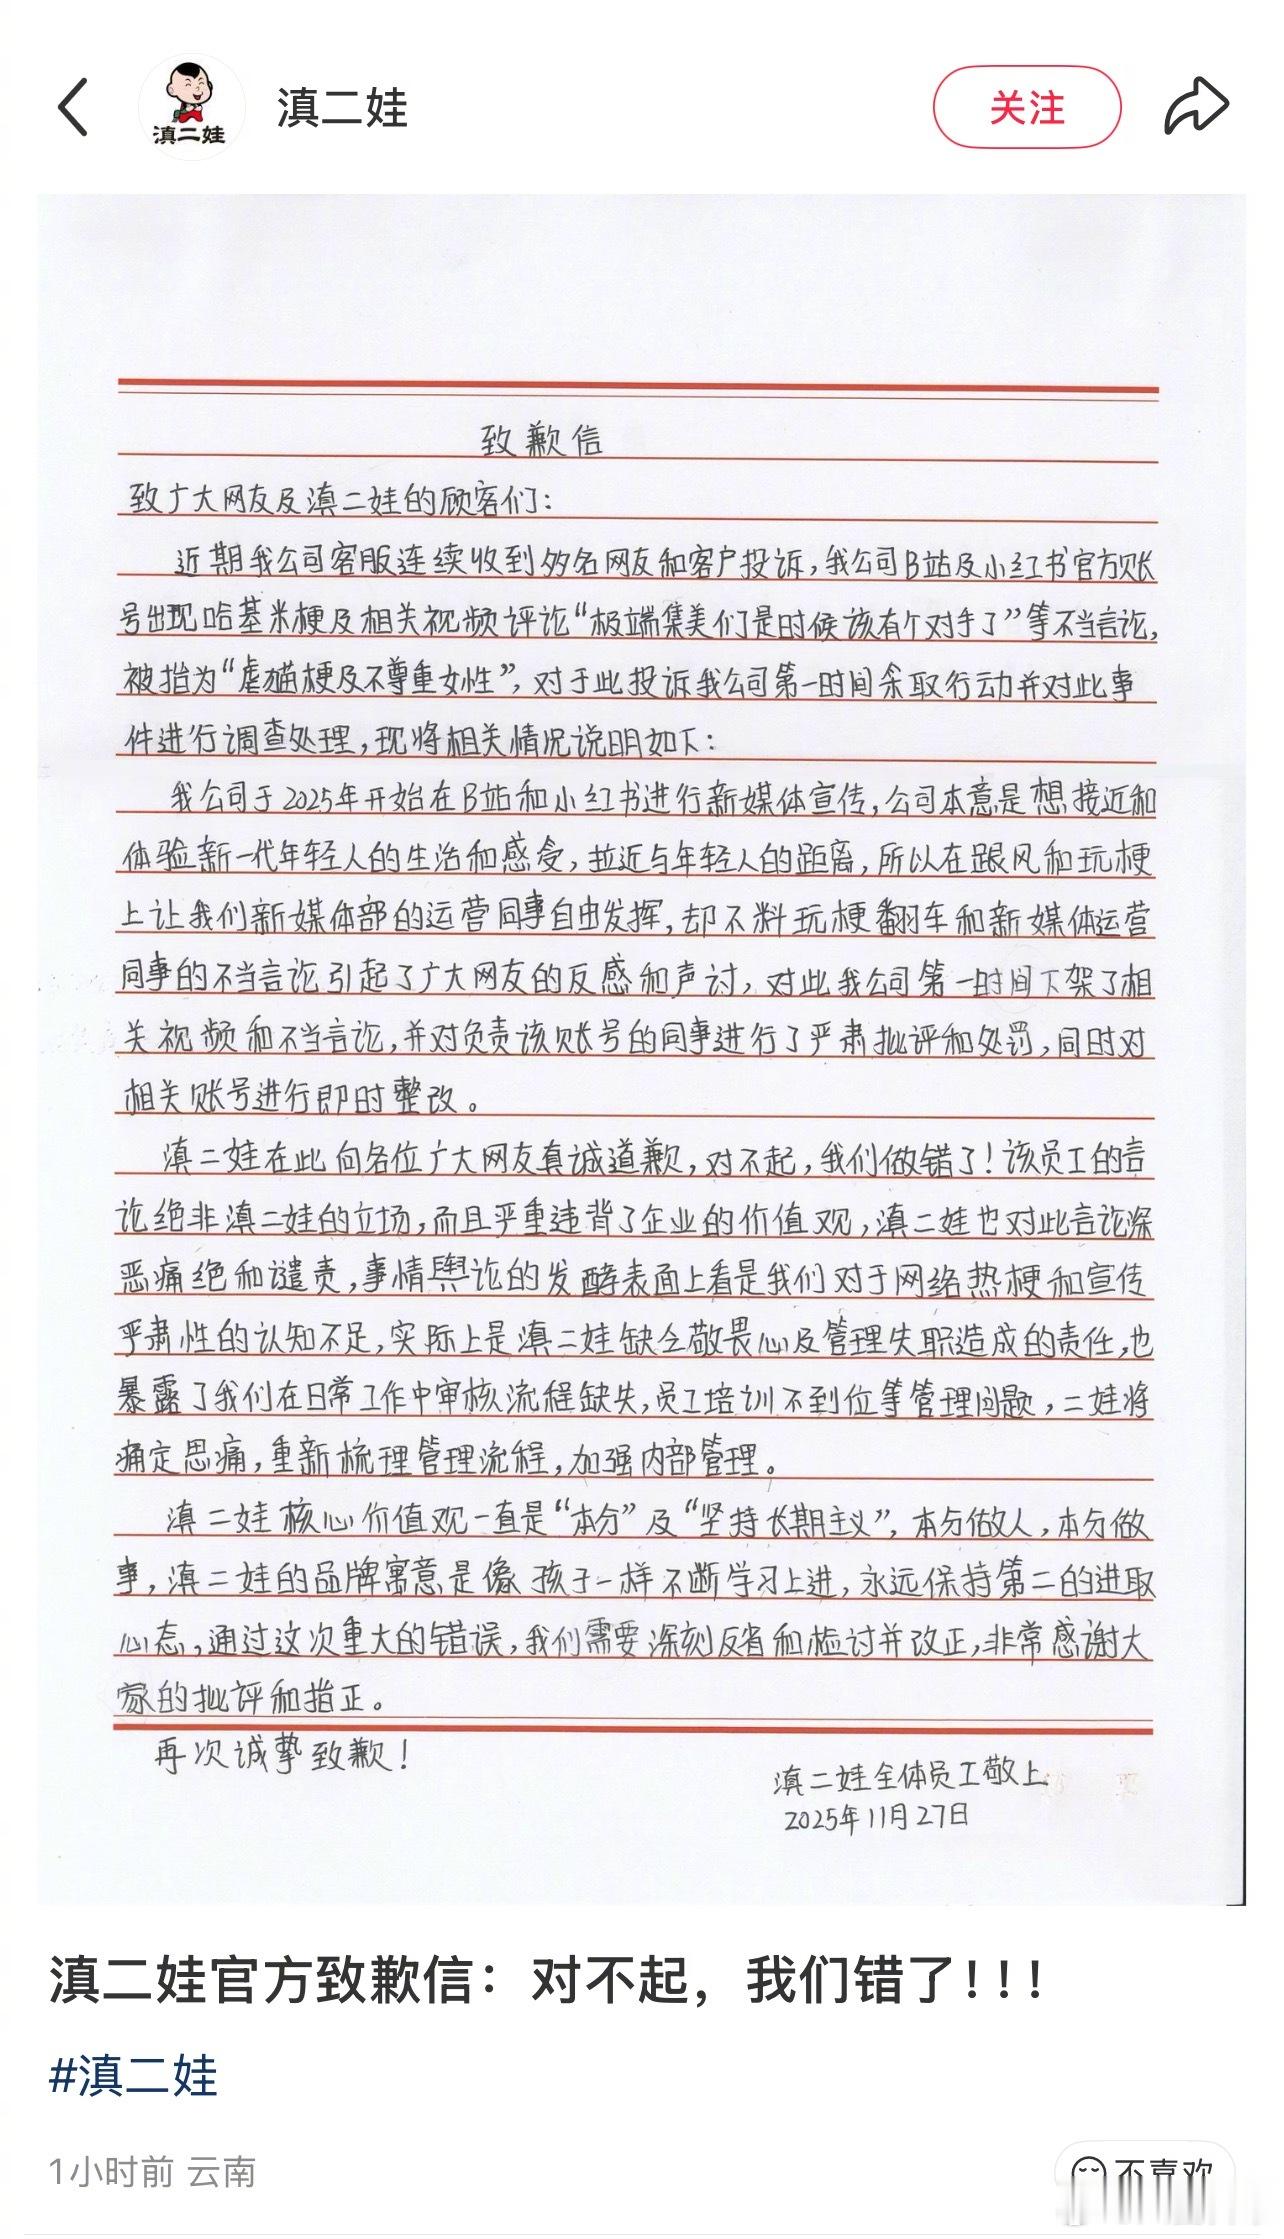 滇二娃
滇二娃
关注
致歉信
致广大网友及滇二娃的顾客们：
近期我公司客服连续收到多名网友和客户投诉，我公司B站及小红书官方账
号出现哈基米梗及相关视频评论“极端集美们是时候该有个对手了”等不当言论，
被指为“虐猫梗及不尊重女性”，对于此投诉我公司第一时间采取行动并对此事
件进行调查处理，现将相关情况说明如下：
我公司于2025年开始在B站和小红书进行新媒体宣传，公司本意是想接近和
体验新一代年轻人的生活和感受，拉近与年轻人的距离，所以在跟风和玩梗
上让我们新媒体部的运营同事自由发挥，却不料玩梗翻车和新媒体运营
同事的不当言论引起了广大网友的反感和声讨，对此我公司第一时间下架了相
关视频和不当言论，并对负责该账号的同事进行了严肃批评和处罚，同时对
相关账号进行即时整改。
滇二娃在此向各位广大网友真诚道歉，对不起，我们做错了！该员工的言
论绝非滇二娃的立场，而且严重违背了企业的价值观，滇二娃也对此言论深
恶痛绝和谴责，事情舆论的发酵表面上看是我们对于网络热梗和宣传
严肃性的认知不足，实际上是滇二娃缺乏敬畏心及管理失职造成的责任，也
暴露了我们在日常工作中审核流程缺失，员工培训不到位等管理问题，二娃将
痛定思痛，重新梳理管理流程，加强内部管理。
滇二娃核心价值观一直是“本分”及“坚持长期主义”，本分做人，本分做
事，滇二娃的品牌寓意是像孩子一样不断学习上进，永远保持第二的进取
心态，通过这次重大的错误，我们需要深刻反省和检讨并改正，非常感谢大
家的批评和指正。
再次诚挚致歉！
滇二娃全体员工敬上
2025年11月27日
滇二娃官方致歉信：对不起，我们错了！！！
#滇二娃
1小时前 云南
不喜欢